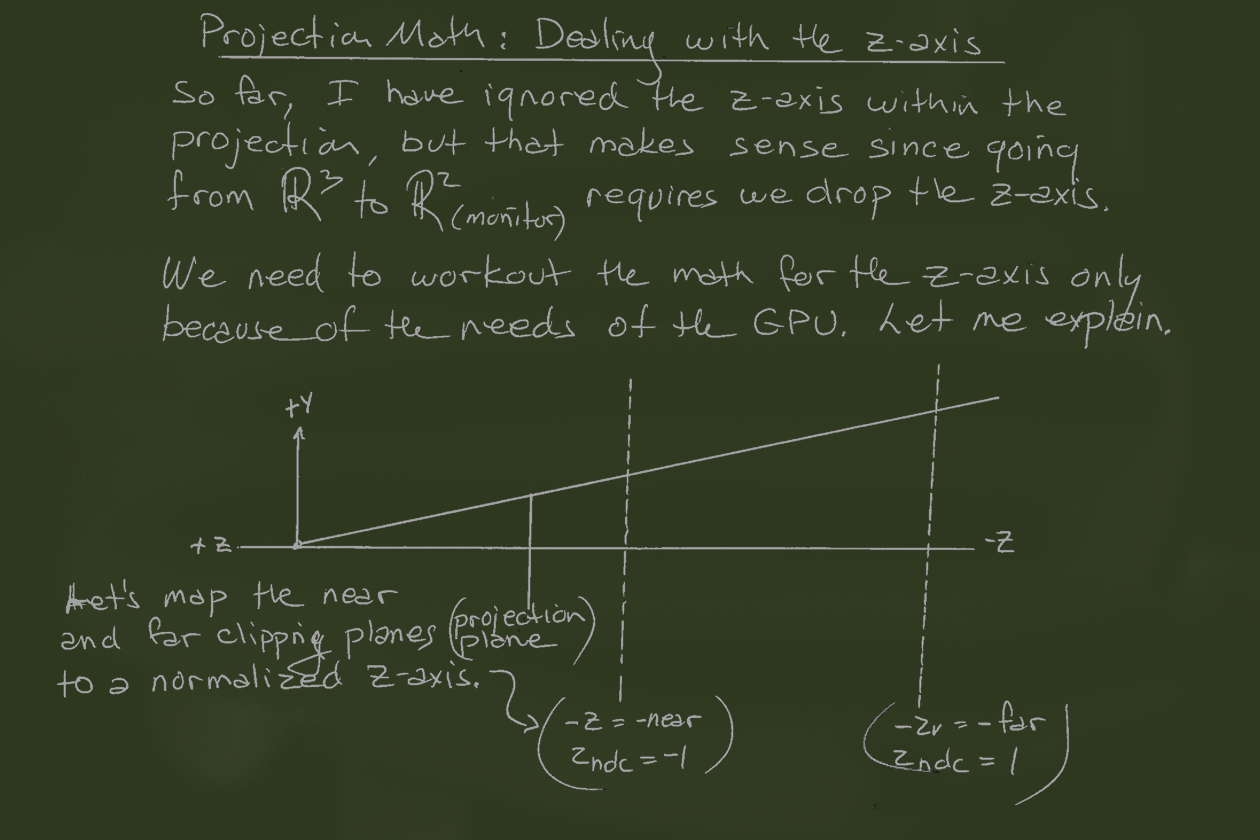 Projection Math: Dealing with the z-axis
So far, I have ignored the z-axis within the
projection, but that makes sense since going
from ℝ³ to ℝ² (monitor) requires we drop the z-axis.
We need to workout the math for the z-axis only
because of the needs of the GPU. Let me explain.
+Y
+Z
-Z
Let's map the near
and far clipping planes
to a normalized z-axis.
(projection
plane)
(-z = -near
Zndc = -1)
(-Zv = -far
Zndc = 1)